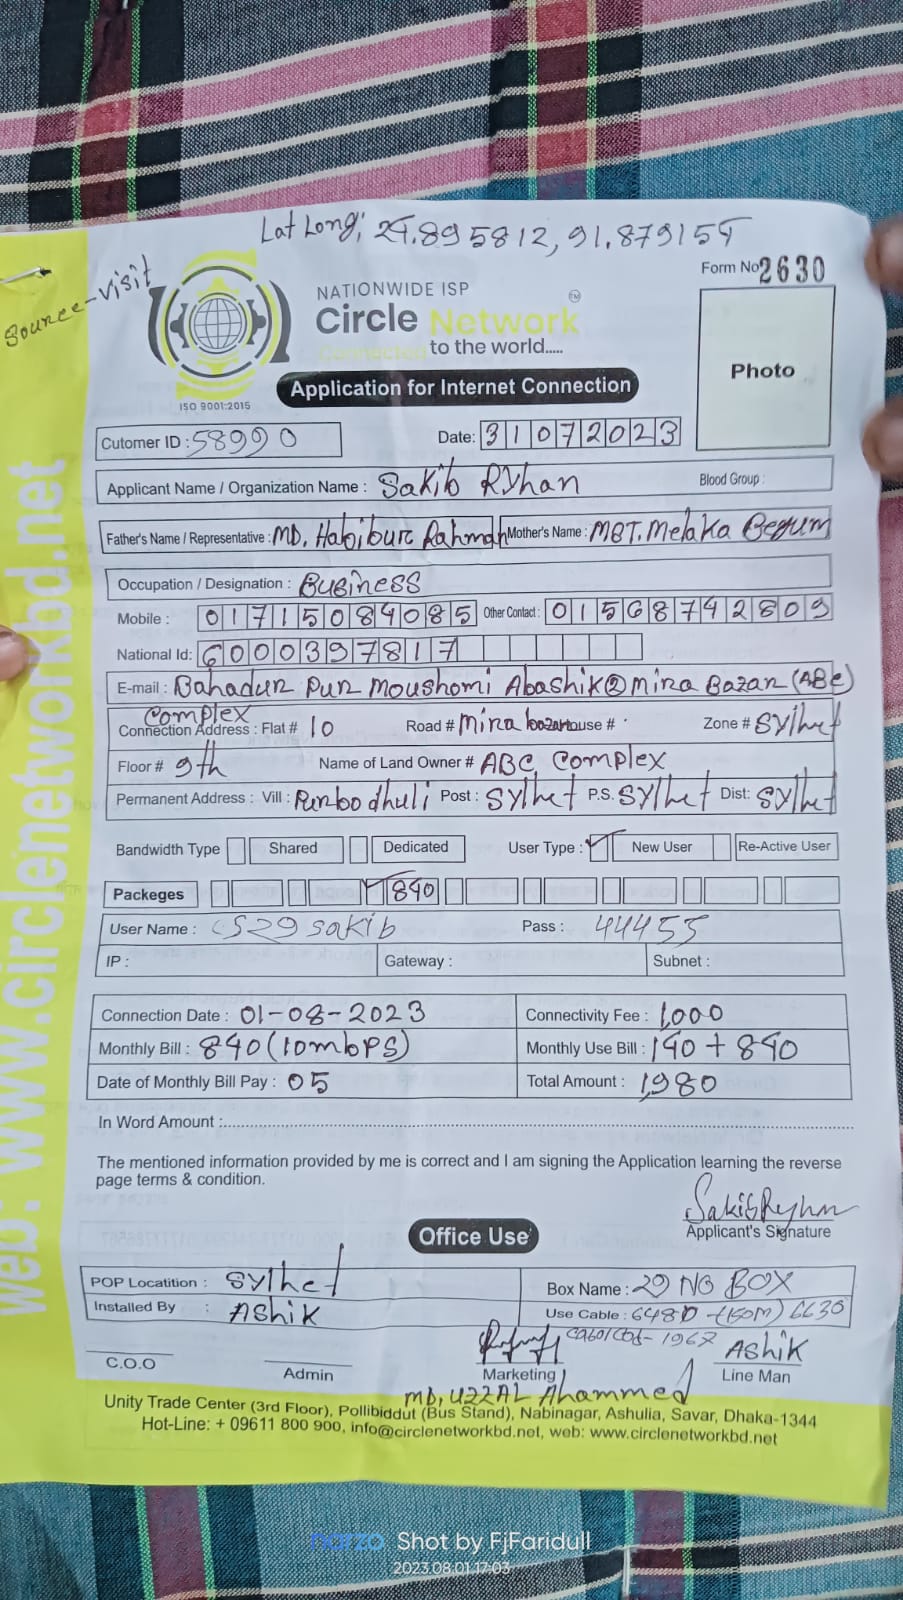 Lat Long; 24.895812, 91.879154
Source-visit
Form No 2630
NATIONWIDE ISP
Circle Network
Connected to the world.....
TM
ISO 9001:2015
Application for Internet Connection
Photo
Cutomer ID : 58990
Date: 31072023
Applicant Name / Organization Name : Sakib RYhan
Blood Group :
Father's Name / Representative : MD. Habibur Rahman Mother's Name : MST. Melaka Begum
Occupation / Designation : Business
Mobile : 01715084085 Other Contact : 01568742809
National Id: 6000397817
E-mail : Bahadur Pur Moushomi Abashik@ Mira Bazar (ABC)
Complex
Connection Address : Flat # 10 Road # Mira bazar House # Zone # Sylhet
Floor # 9th Name of Land Owner # ABC Complex
Permanent Address : Vill : Purbo dhuli Post : Sylhet P.S. Sylhet Dist: Sylhet
Bandwidth Type Shared Dedicated User Type : New User Re-Active User
Packeges 840
User Name : CS29 sakib Pass : 44455
IP : Gateway : Subnet :
Connection Date : 01-08-2023 Connectivity Fee : 1,000
Monthly Bill : 840 (10mbPS) Monthly Use Bill : 140 + 840
Date of Monthly Bill Pay : 05 Total Amount : 1,980
In Word Amount :
The mentioned information provided by me is correct and I am signing the Application learning the reverse
page terms & condition.
Applicant's Signature
Office Use
POP Locatition : Sylhet Box Name : 29 NO BOX
Installed By : Ashik Use Cable : 6480 - (150M) 6630
1967
Ashik
C.O.O Admin Marketing Line Man
MD, UZZAL Ahammed
Unity Trade Center (3rd Floor), Pollibiddut (Bus Stand), Nabinagar, Ashulia, Savar, Dhaka-1344
Hot-Line: + 09611 800 900, info@circlenetworkbd.net, web: www.circlenetworkbd.net
web: www.circlenetworkbd.net
narzo Shot by FjFaridull
2023.08.01 17:03